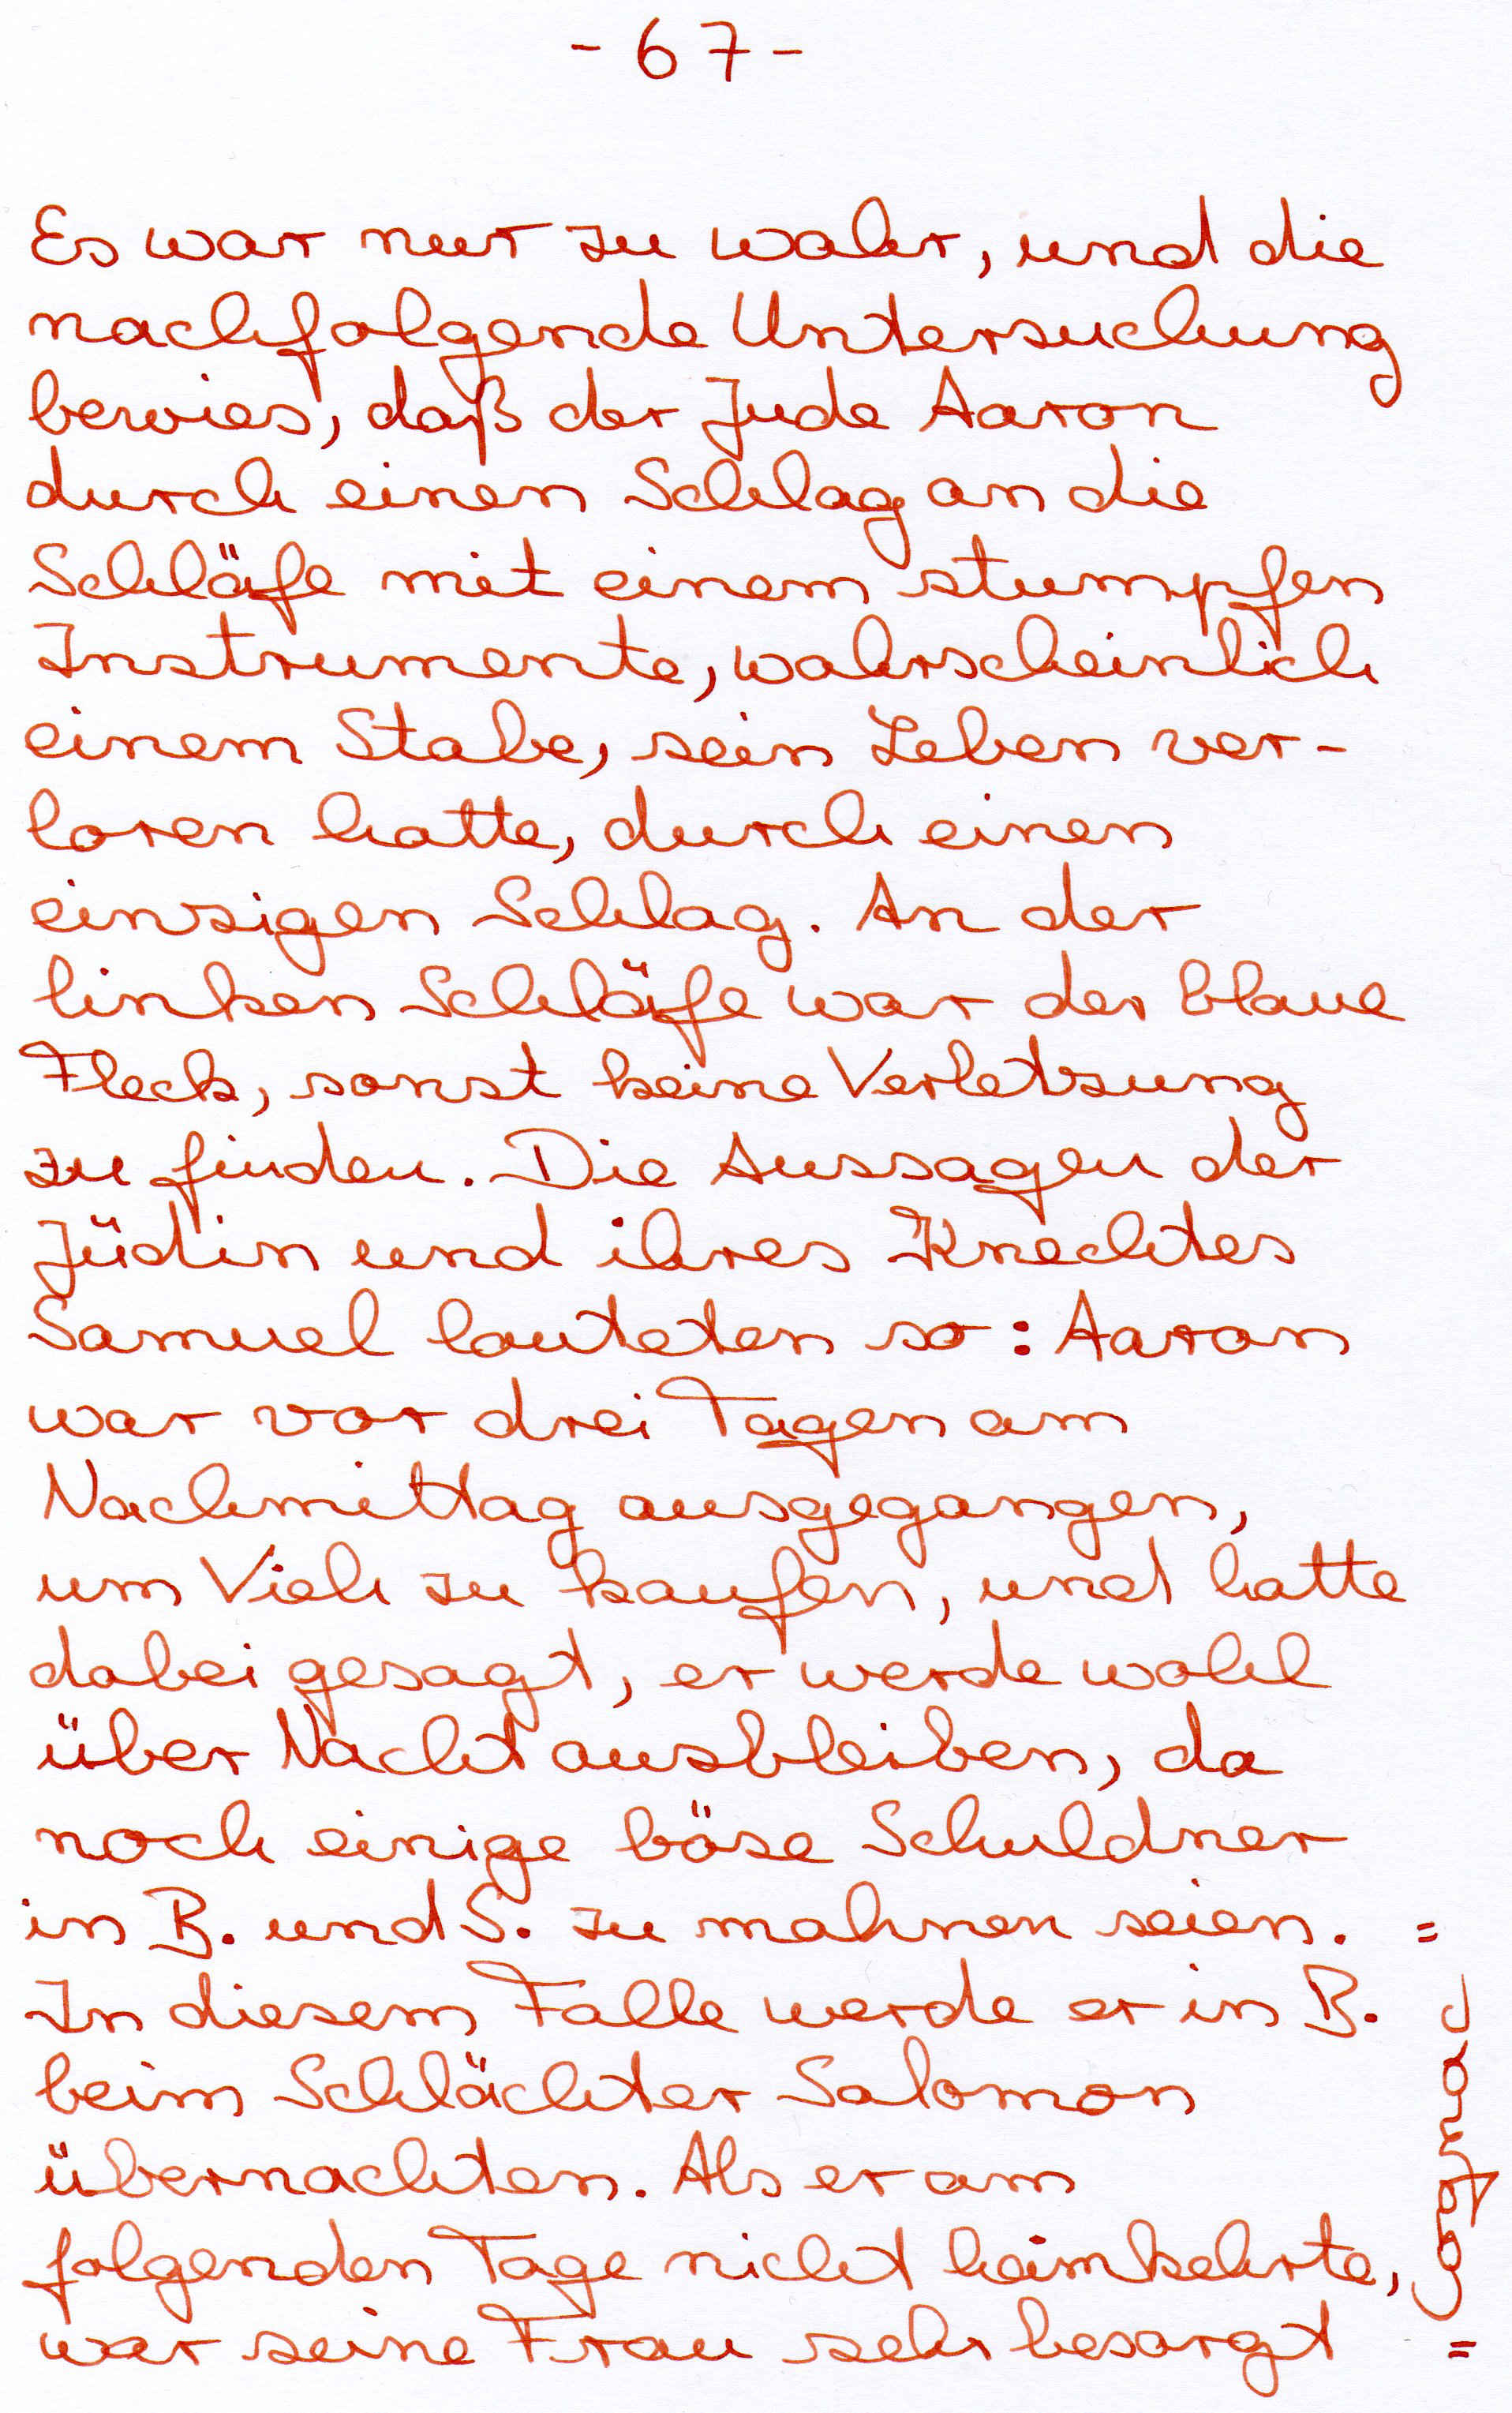 - 67 -
Es war nur zu wahr, und die
nachfolgende Untersuchung
bewies, daß der Jude Aaron
durch einen Schlag an die
Schläfe mit einem stumpfen
Instrumente, wahrscheinlich
einem Stabe, sein Leben ver-
loren hatte, durch einen
einzigen Schlag. An der
linken Schläfe war der blaue
Fleck, sonst keine Verletzung
zu finden. Die Aussagen der
Jüdin und ihres Knechtes
Samuel lauteten so: Aaron
war vor drei Tagen am
Nachmittag ausgegangen,
um Vieh zu kaufen, und hatte
dabei gesagt, er werde wohl
über Nacht ausbleiben, da
noch einige böse Schuldner
in B. und S. zu mahnen seien. =
In diesem Falle werde er in B.
beim Schlächter Salomon
übernachten. Als er am
folgenden Tage nicht heimkehrte,
war seine Frau sehr besorgt =